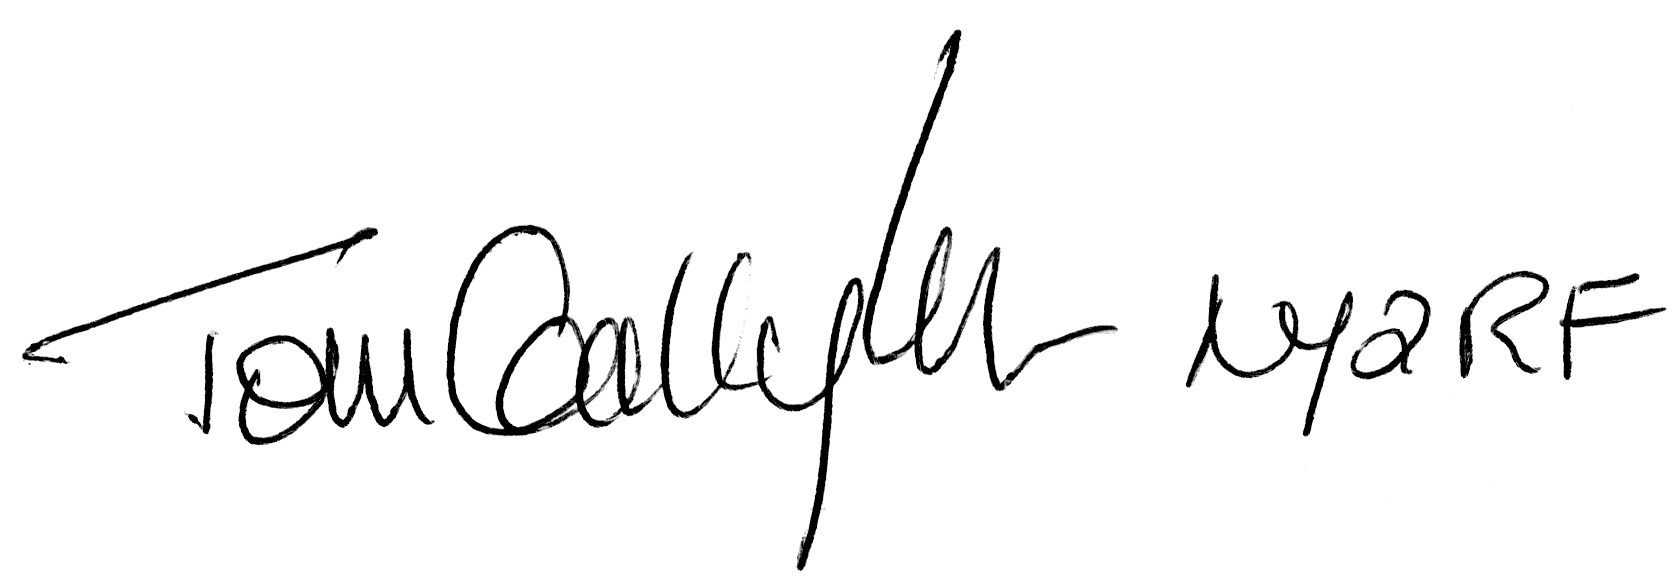 Tom Callaghan NY2RF